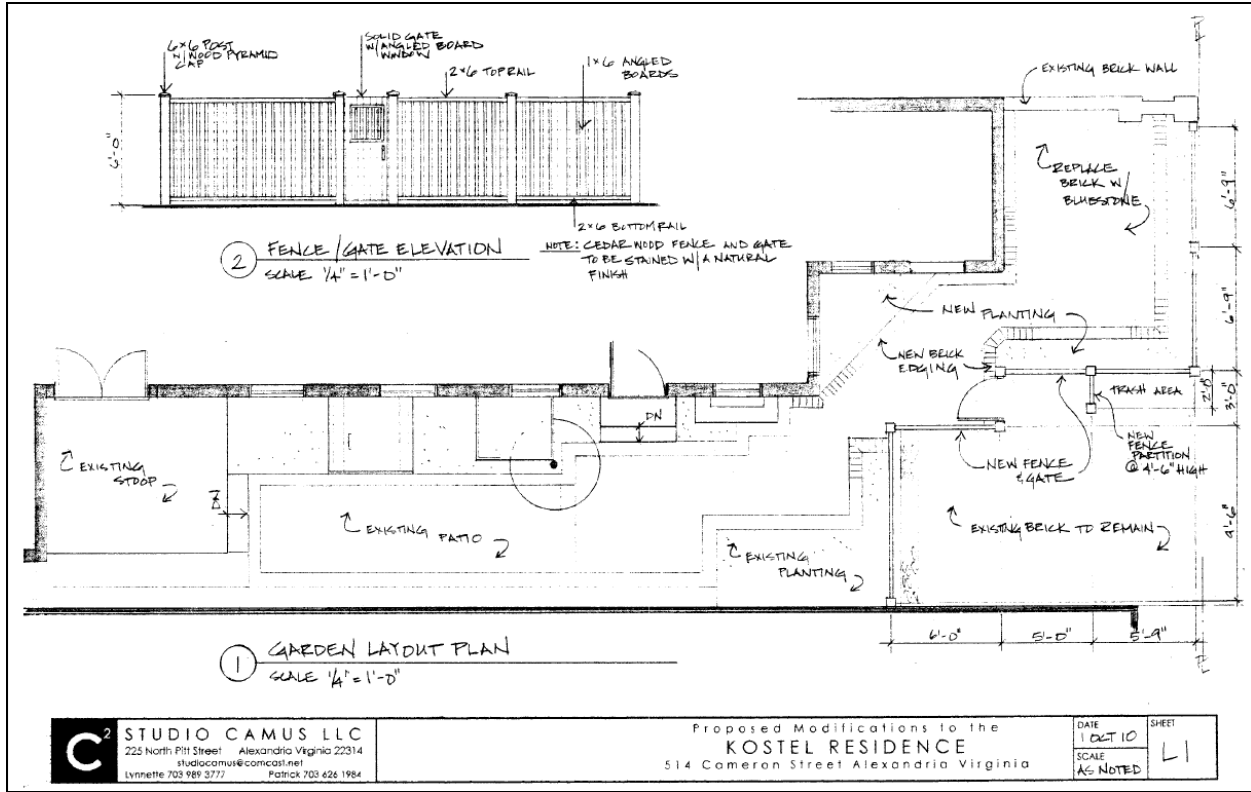 6x6 POST
W/ WOOD PYRAMID
CAP
SOLID GATE
W/ ANGLED BOARD
WINDOW
2x6 TOP RAIL
1x6 ANGLED
BOARDS
6'-0"
2x6 BOTTOM RAIL
2 FENCE/GATE ELEVATION
SCALE 1/4" = 1'-0"
NOTE: CEDAR WOOD FENCE AND GATE
TO BE STAINED W/ A NATURAL
FINISH
EXISTING BRICK WALL
REPLACE
BRICK W/
BLUESTONE
6'-9"
6'-9"
NEW PLANTING
NEW BRICK
EDGING
TRASH AREA
2'-0"
3'-0"
NEW
FENCE
PARTITION
@ 4'-6" HIGH
NEW FENCE
& GATE
DN
EXISTING
STOOP
EXISTING PATIO
EXISTING
PLANTING
EXISTING BRICK TO REMAIN
9'-6"
6'-0"
5'-0"
5'-9"
1 GARDEN LAYOUT PLAN
SCALE 1/4" = 1'-0"
C2
STUDIO CAMUS LLC
225 North Pitt Street Alexandria Virginia 22314
studiocamus@comcast.net
Lynnette 703 989 3777 Patrick 703 626 1984
Proposed Modifications to the
KOSTEL RESIDENCE
514 Cameron Street Alexandria Virginia
DATE
1 OCT 10
SCALE
AS NOTED
SHEET
L1